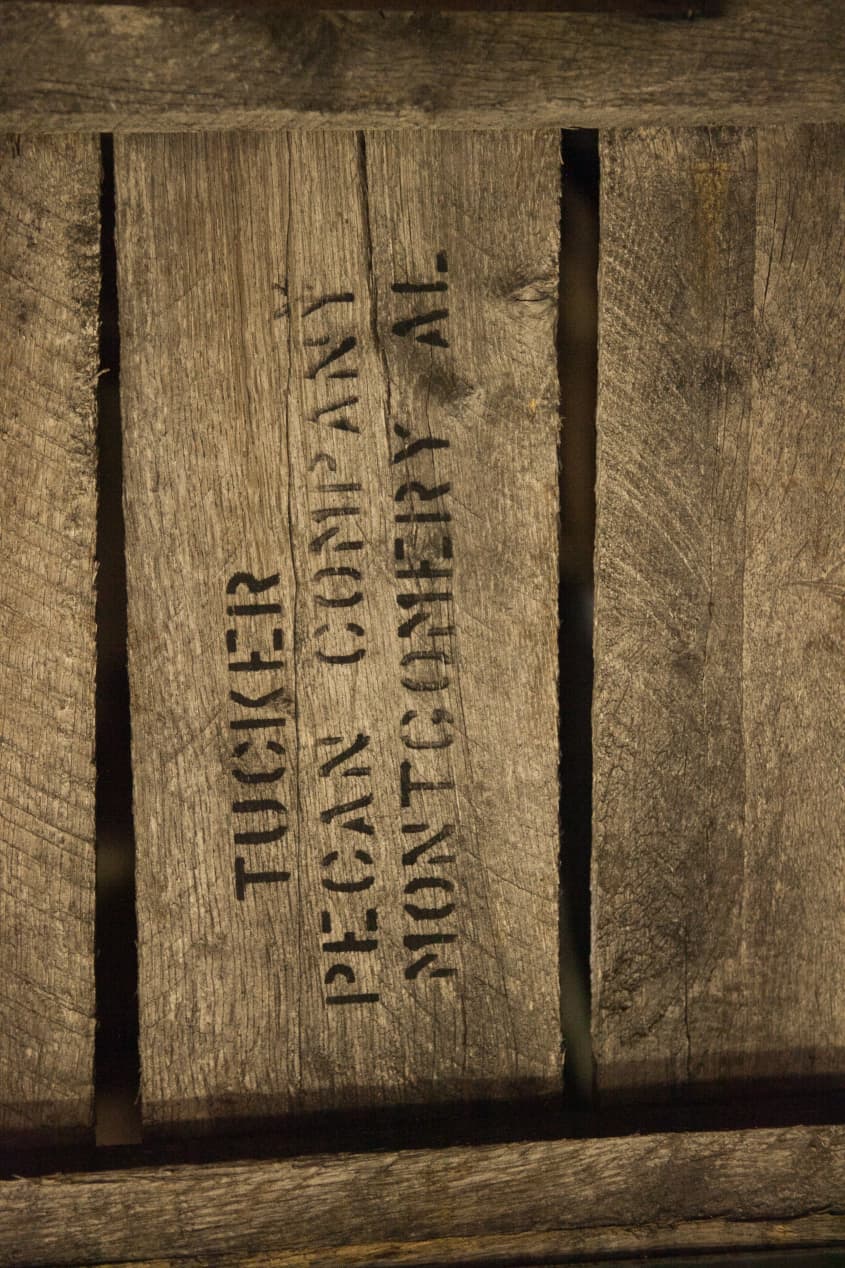 TUCKER
PECAN COMPANY
MONTGOMERY AL